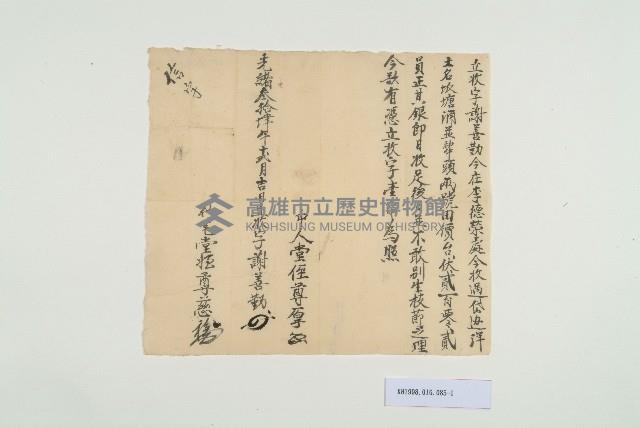 立收字謝善勤今在李德榮處今收過
土名坎塘涌並肆頭兩號田價台伏貳百零貳
員正其銀即日收足後日並不敢別生枝節之理
今欲有憑立收字壹紙為照
人堂侄尊厚
光緒叁拾肆年十弍月吉日立收字謝善勤
堂侄尊慈
信字
高雄市立歷史博物館
KAOHSIUNG MUSEUM OF HISTORY
KH1998.016.085-1